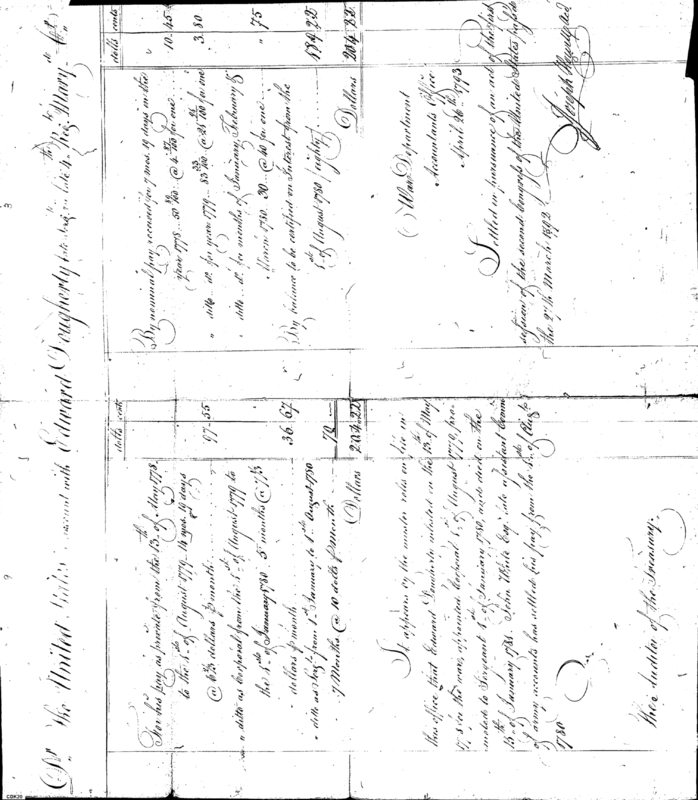 Dr The United States in account with Edward Dougherty late Serjt in late 4th Regt Maryd Cr
dolls cents
For his pay as private from the 13th of May 1778
to the 1st of August 1779. 14 mos. 19 days
@ 6 2/3 dollars pr month 97.55
" ditto as Corporal from the 1st of August 1779 to
the 1st of January 1780 5 months @ 7 1/3
dollars pr month 36.67
" ditto as Serjt from 1st January to 1st August 1780
7 Months @ 10 dolls pr month 70
Dollars 204.22
It appears by the muster rolls on file in
this office that Edward inlisted on the 13th of May
1778 for the war, appointed Corporal 1st of August 1779, pro-
moted to Serjeant 1st of January 1780, and died on the
15th of January 1781. John White Esqr late assistant Commr
of army accounts has settled his pay from the 1st of Augt
1780
The Auditor of the Treasury.
dolls cents
By nominal pay received for 7 mos. 19 days in the
year 1778 50 @ for one 10.45
" ditto do for year 1779 83 @ for one 3.80
" ditto do for months of January, February &
March 1780. 30 @ 40 for one " 75
By balance to be certified on Interest from the
1st of August 1780 (eighty) 189.22
Dollars 204.22
War Department
Accountants Office
April 26th 1793
Settled in pursuance of an act of the first
session of the second Congress of the United States passed
the 27th March 1792
Joseph Howell
CDK20